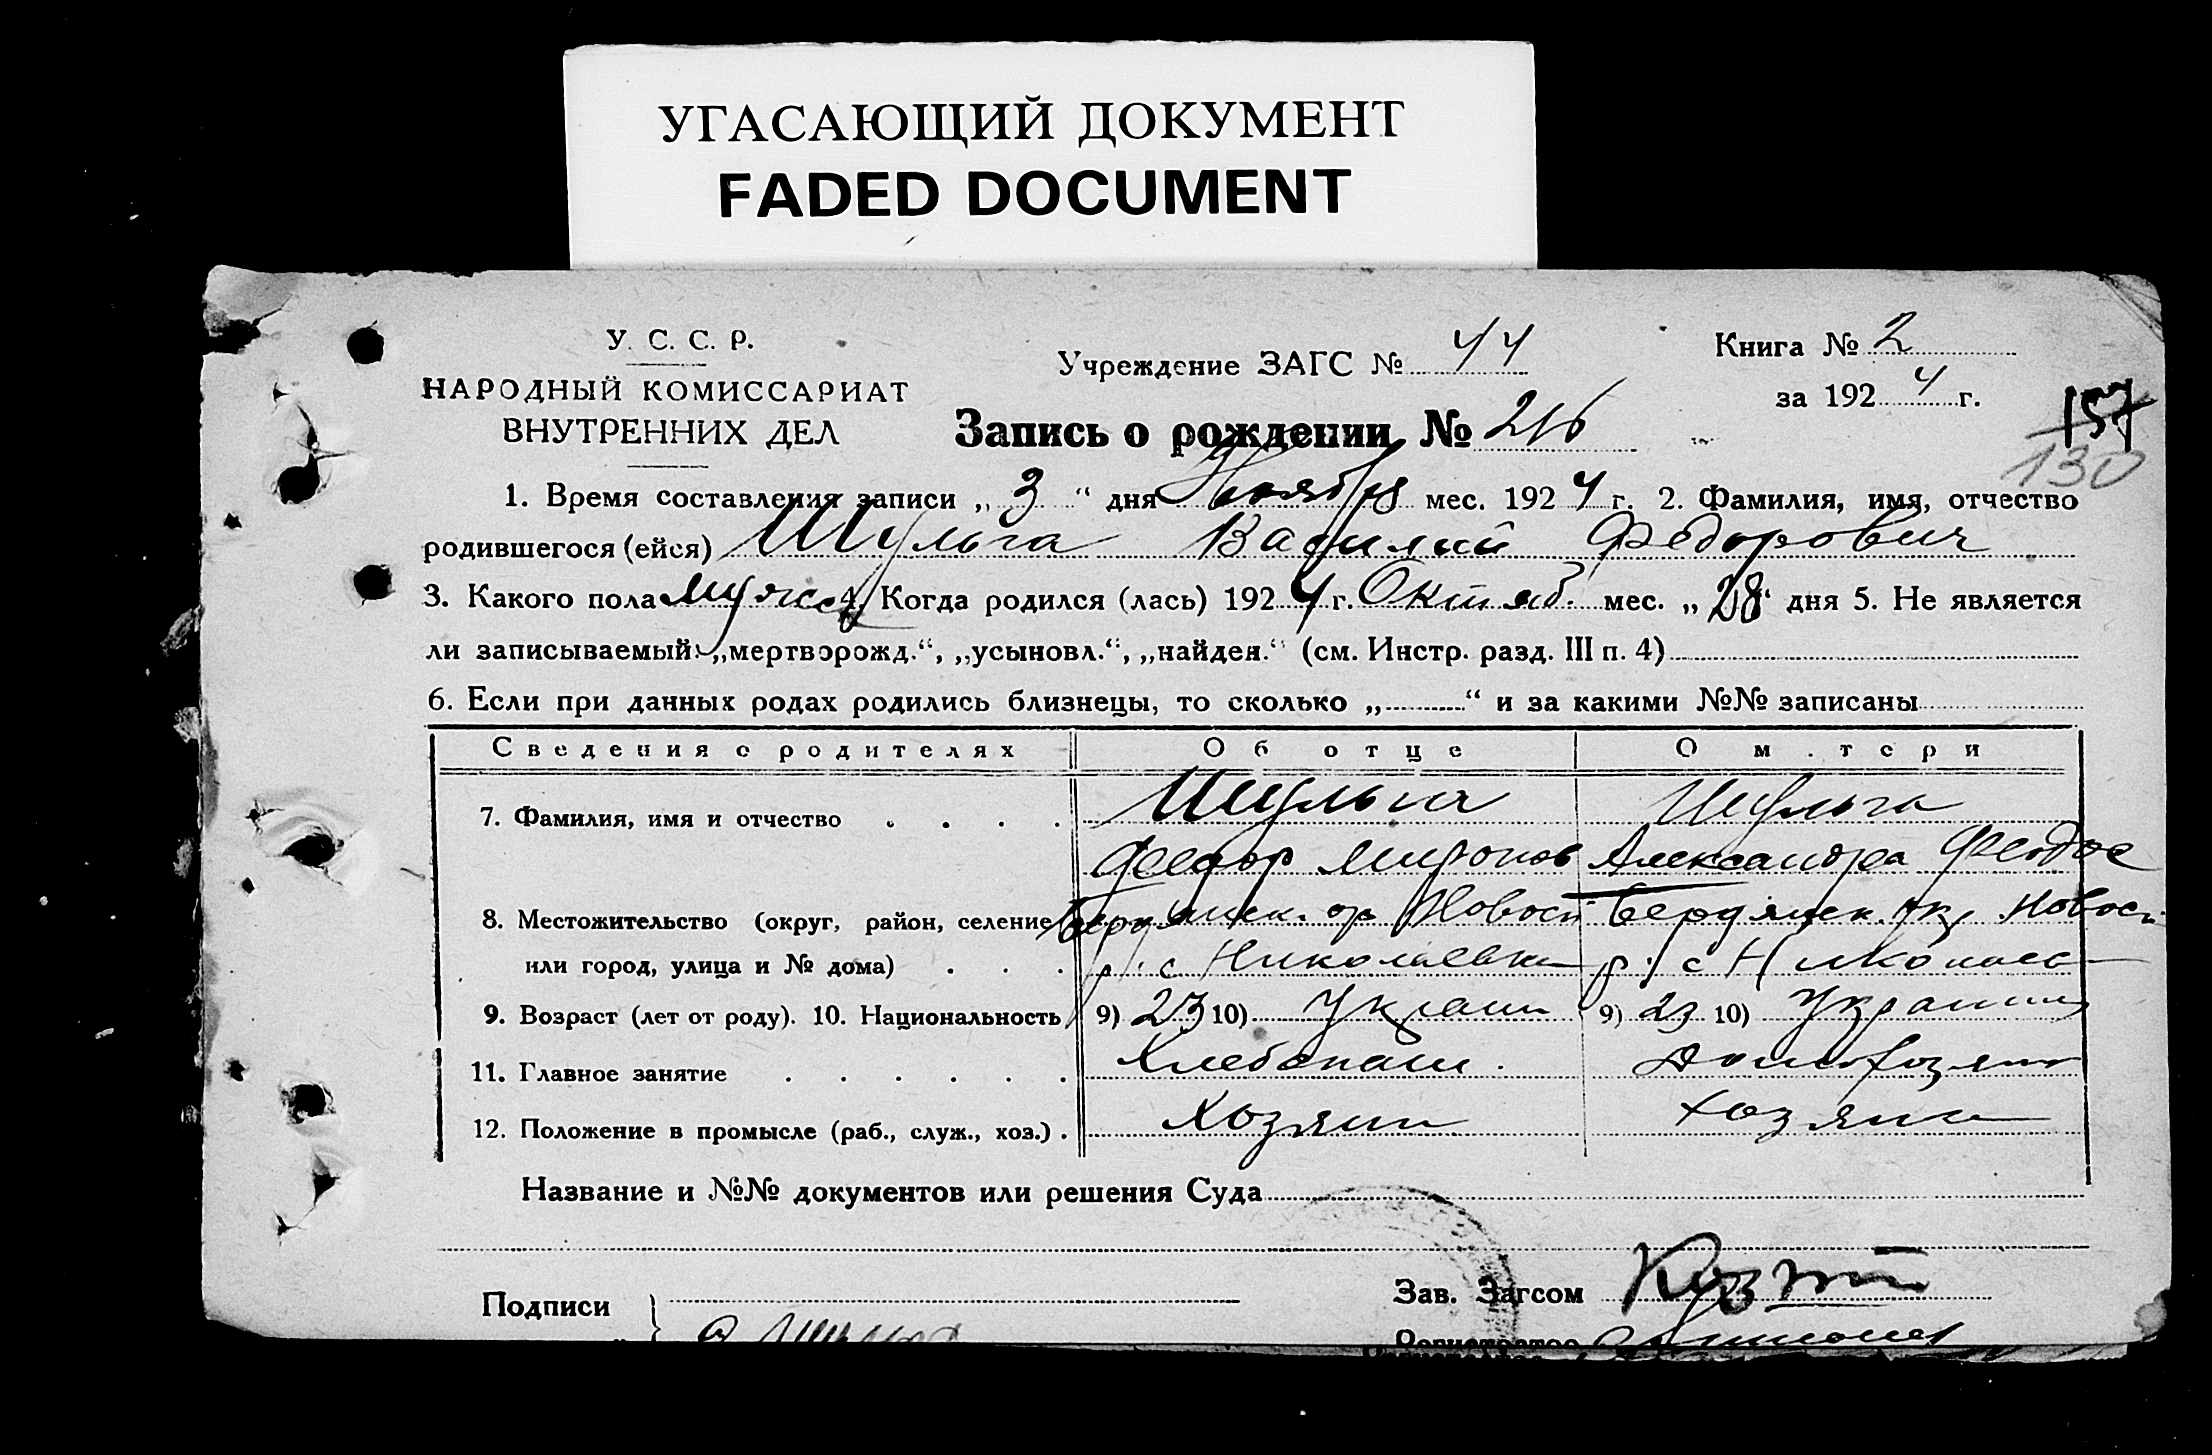 УГАСАЮЩИЙ ДОКУМЕНТ
FADED DOCUMENT
У. С. С. Р.
НАРОДНЫЙ КОМИССАРИАТ
ВНУТРЕННИХ ДЕЛ
Учреждение ЗАГС № 44
Книга № 2
за 1924 г.
Запись о рождении № 216
157
130
1. Время составления записи „3“ дня Ноября мес. 1924 г. 2. Фамилия, имя, отчество
родившегося (ейся) Шульга Василий Федорович
3. Какого пола мужск 4. Когда родился (лась) 1924 г. Октяб. мес. „28“ дня 5. Не является
ли записываемый: „мертворожд.“, „усыновл.“, „найден.“ (см. Инстр. разд. III п. 4)
6. Если при данных родах родились близнецы, то сколько „ “ и за какими №№ записаны
Сведения о родителях Об отце О м.тери
7. Фамилия, имя и отчество . . . . Шульга Шульга
Федор Миронов Александра Феодос
8. Местожительство (округ, район, селение Бердянск. ок Новосп Бердянск. ок, Новосп
или город, улица и № дома) . . . р. с Николаевка р. с Николаев
9. Возраст (лет от роду). 10. Национальность 9) 23 10) Украин 9) 23 10) Украин
11. Главное занятие . . . . . . Хлебопаш. Домохозяйк
12. Положение в промысле (раб., служ., хоз.) . Хозяин хозяйк
Название и №№ документов или решения Суда
Подписи
Зав. Загсом
Регистратор